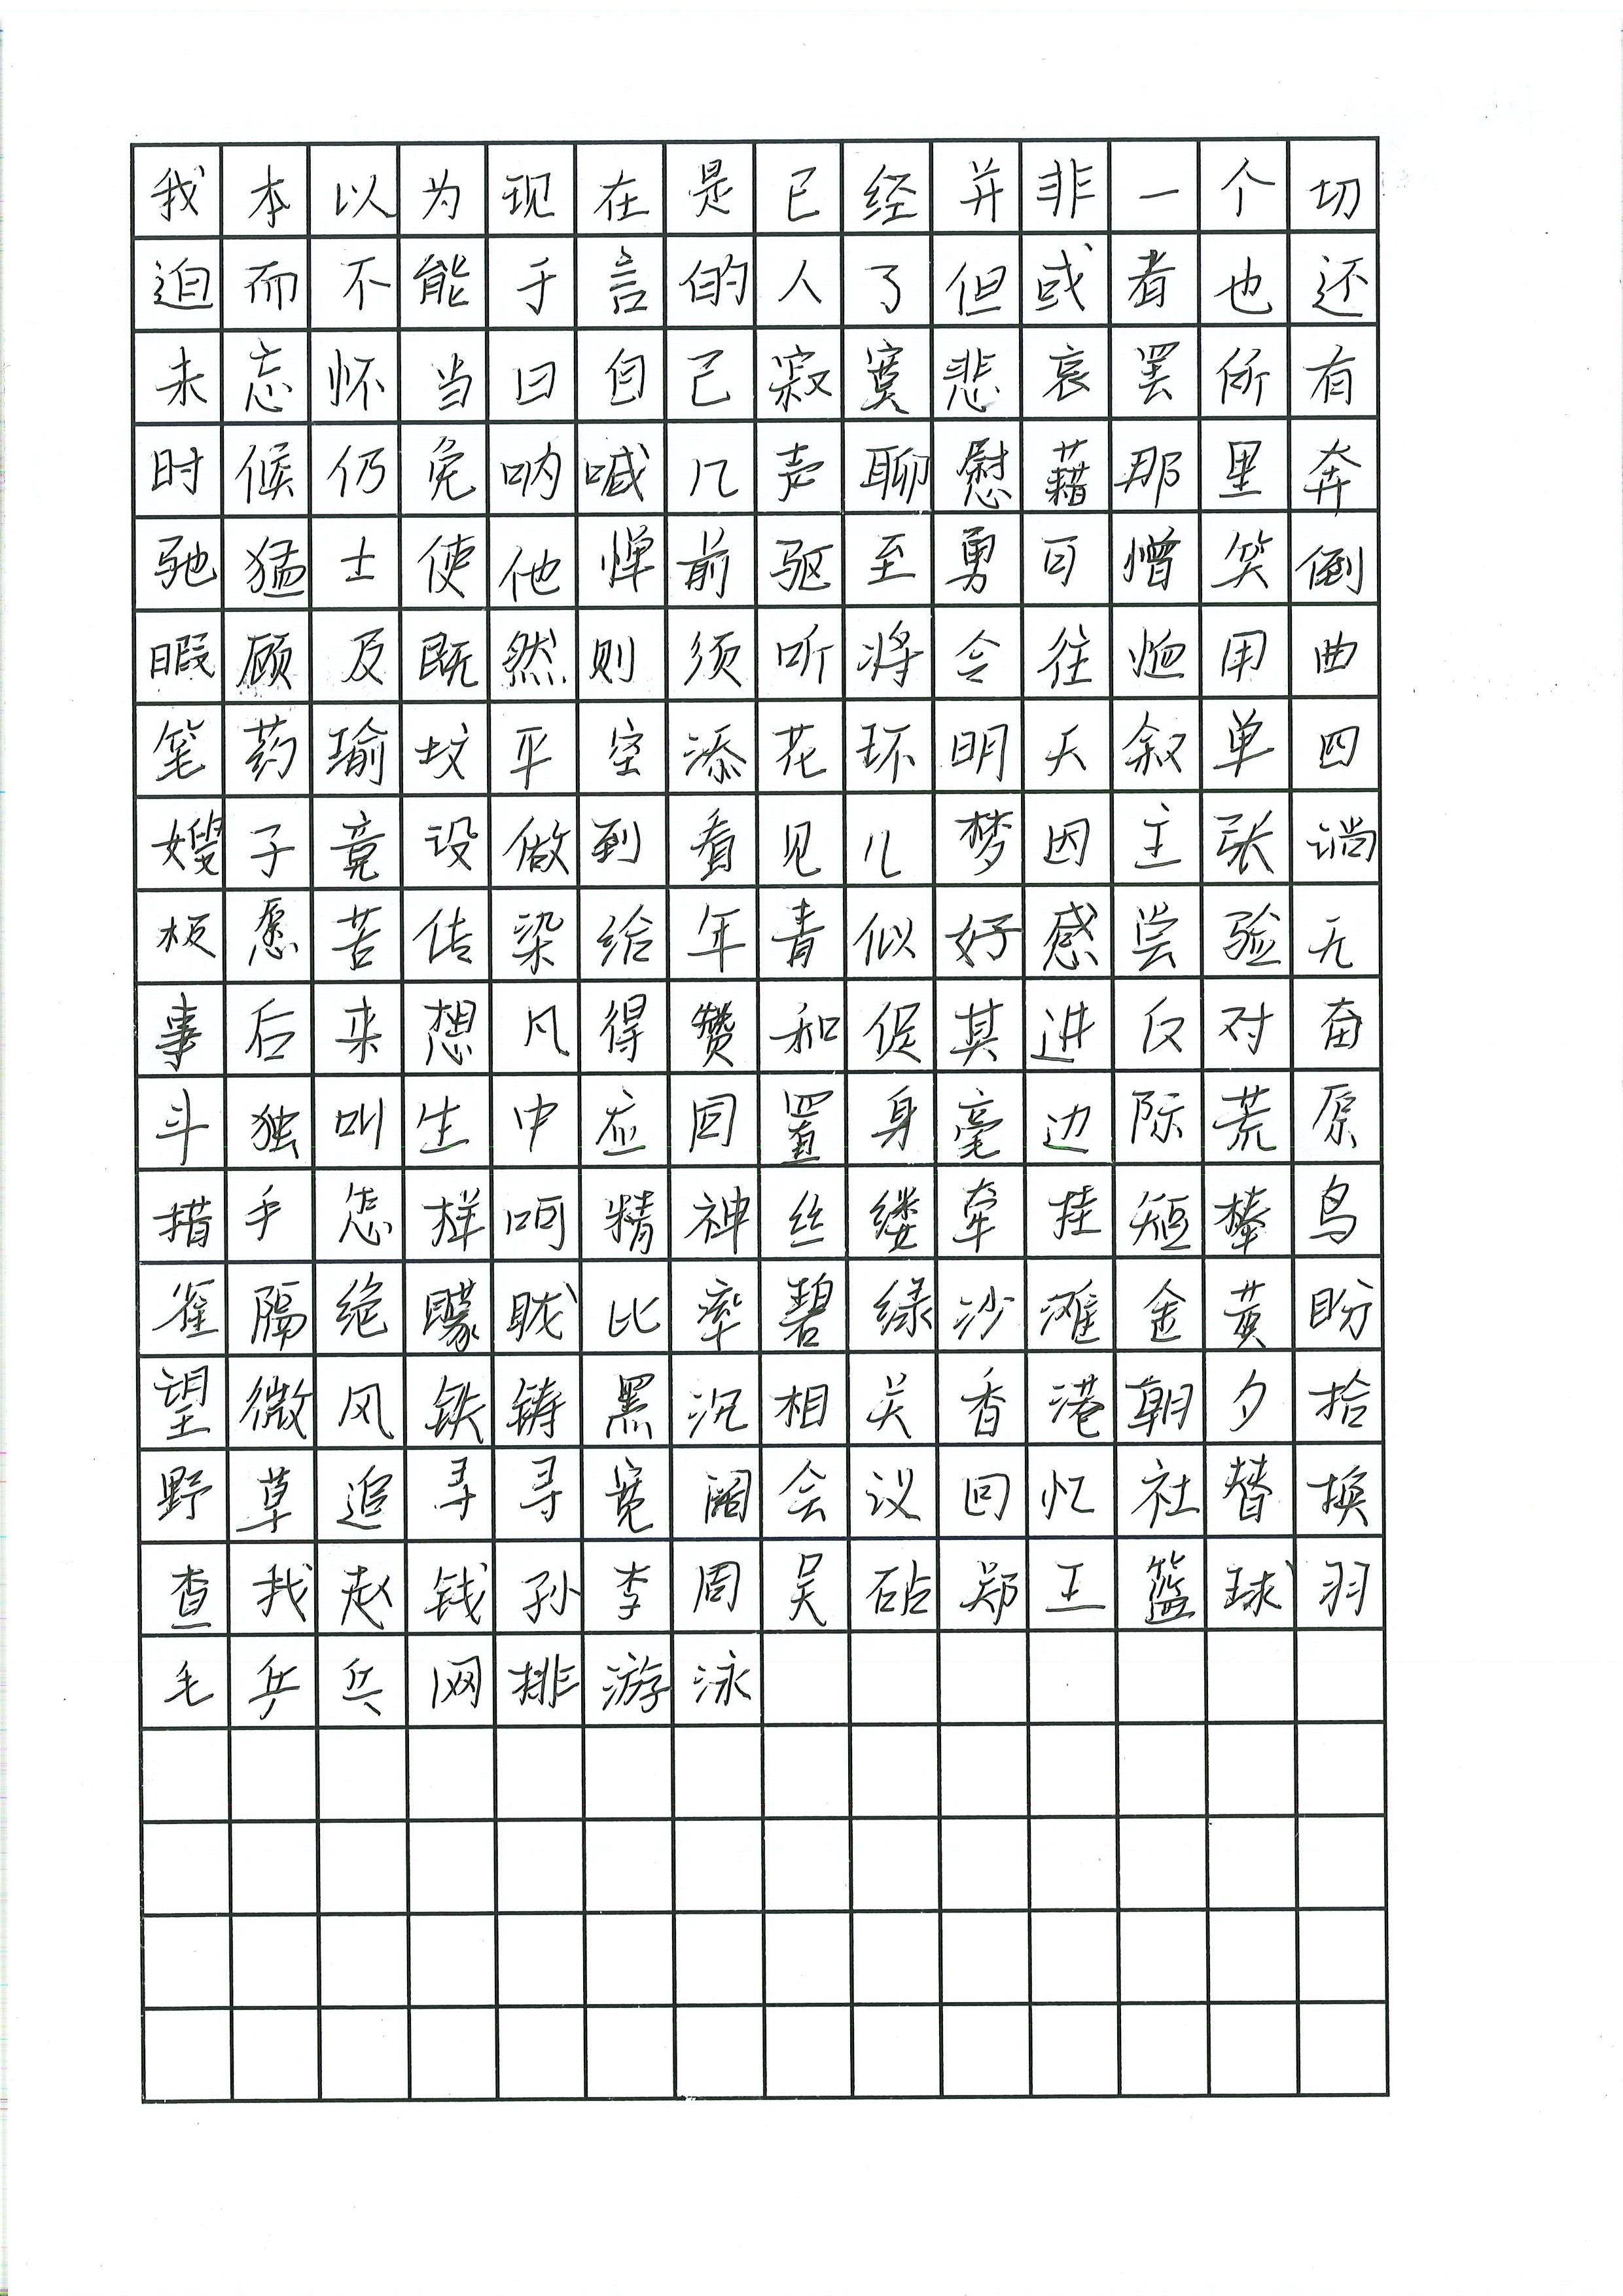 我本以为现在是已经并非一个切
迫而不能于言的人了但或者也还
未忘怀当日自己寂寞悲哀罢所有
时候仍免呐喊几声聊慰藉那里奔
驰猛士使他惮前驱至勇可憎笑倒
暇顾及既然则须听将令往她用曲
笔药瑜坟平空添花环明天叙单四
嫂子竟没做到看见儿梦因主张消
极愿苦传染给年青似好感尝验无
事后来想凡得赞和促其进反对奋
斗独叫生中应回置身毫边际荒原
措手怎样呵精神丝缕牵挂短棒鸟
雀隔绝矇眬比率碧绿沙滩金黄盼
望微风铁铸黑沉相关香港朝夕拾
野草追寻寻宽阔会议回忆社替换
查找赵钱孙李周吴砧郑王篮球羽
毛乒乓网排游泳